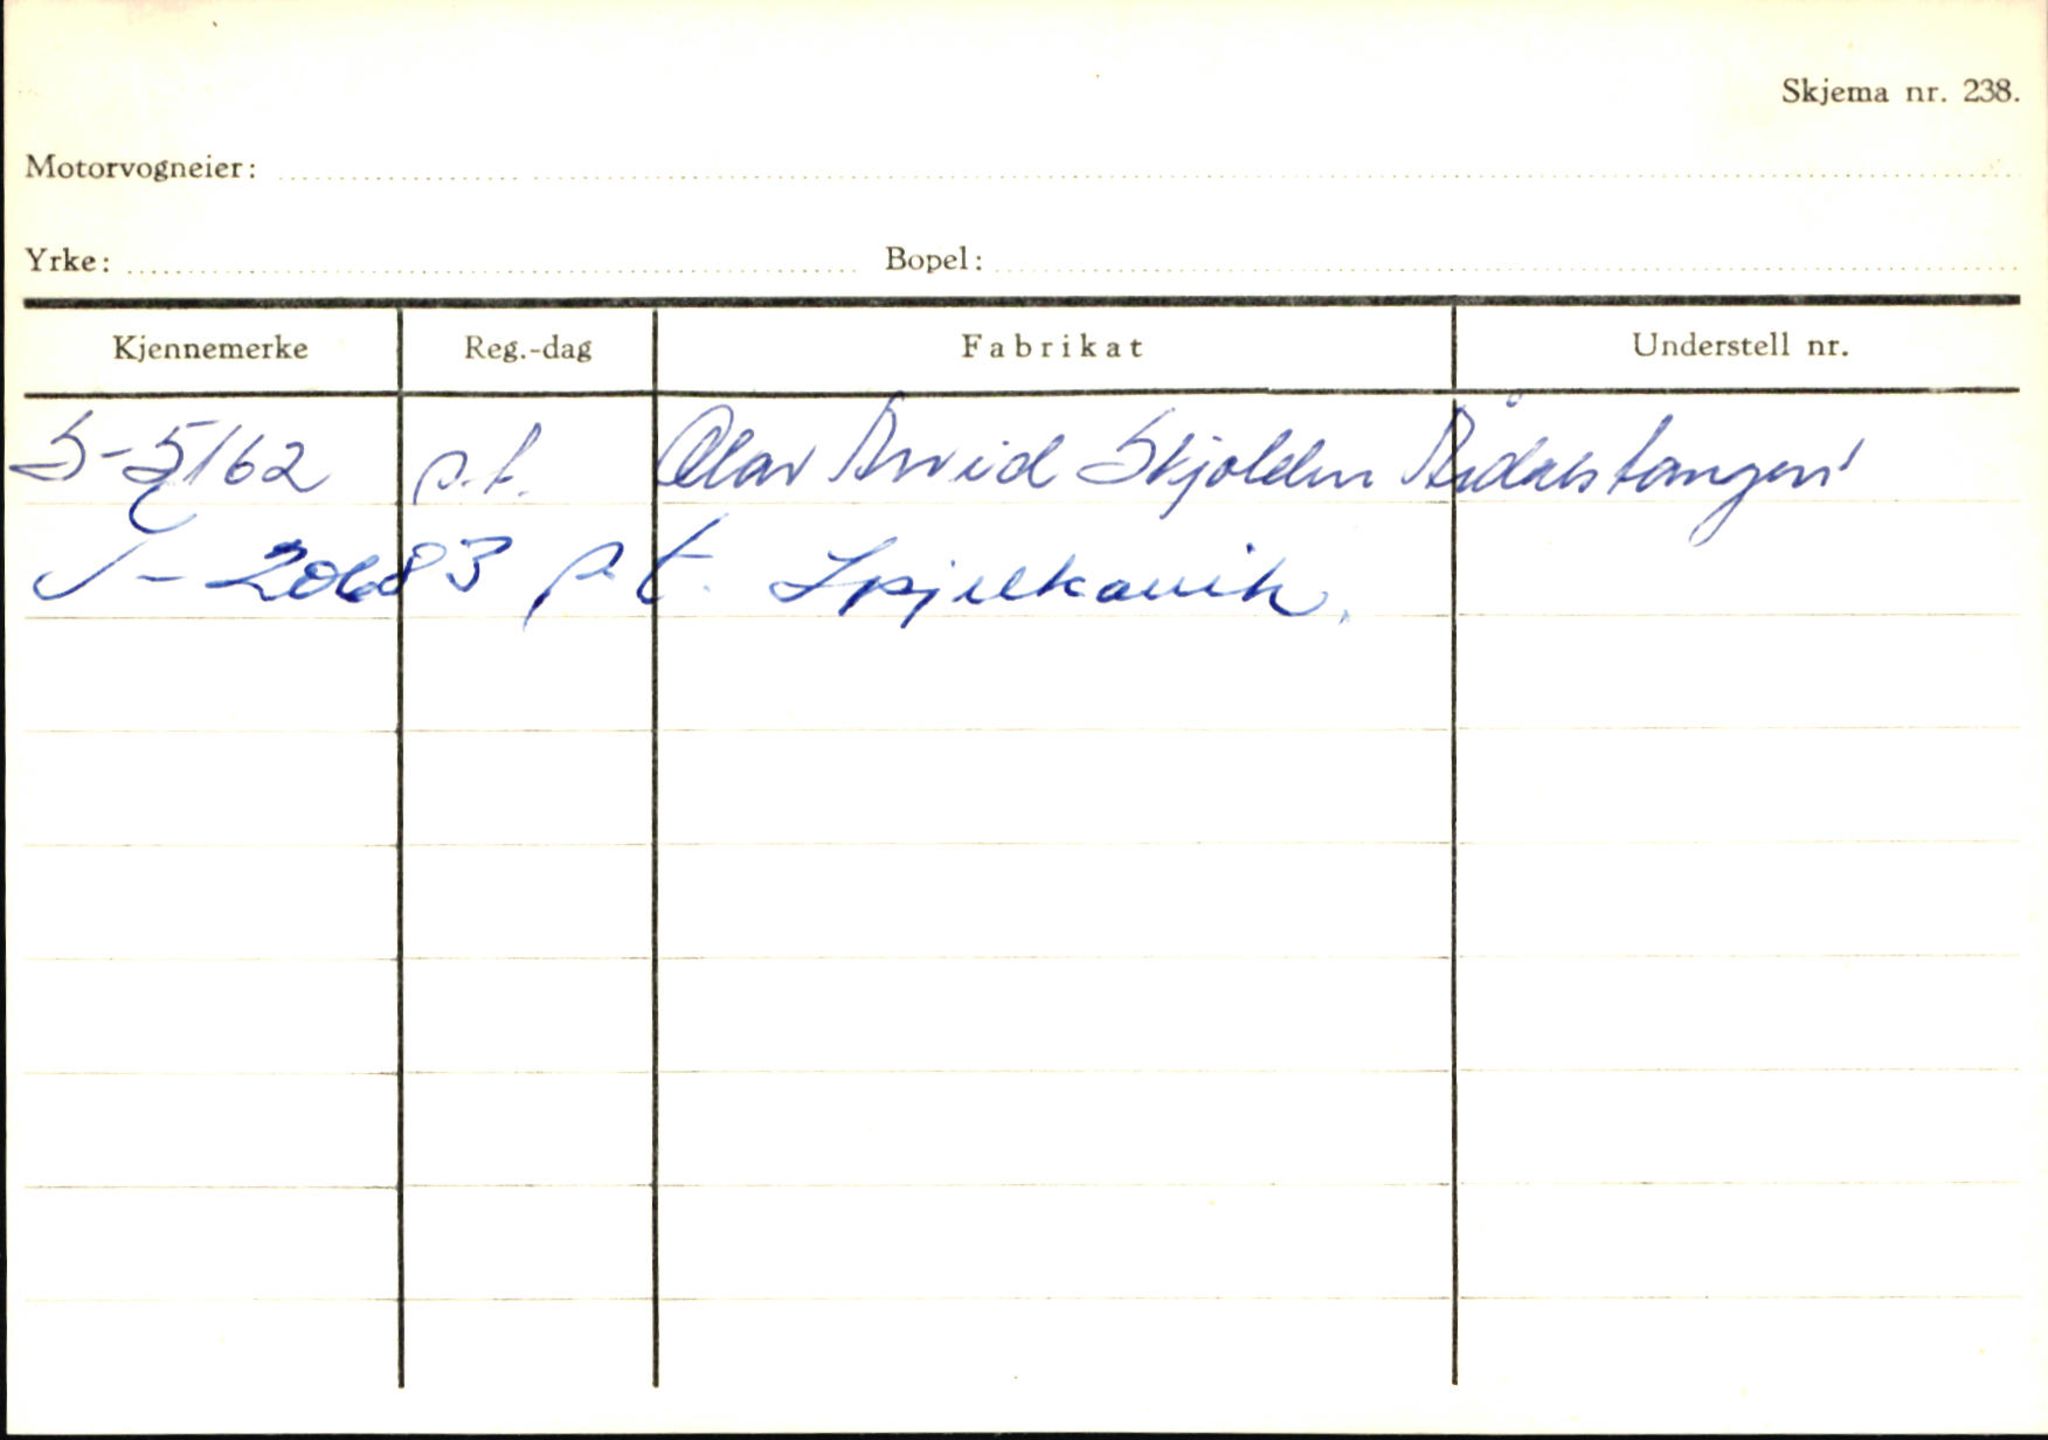 Skjema nr. 238.
Motorvogneier:
Yrke: Bopel:
Kjennemerke Reg.-dag Fabrikat Understell nr.
S-5162 p.t. Olav Arvid Skjolden Årdalstangen
20683 p.t. Spjelkavik.